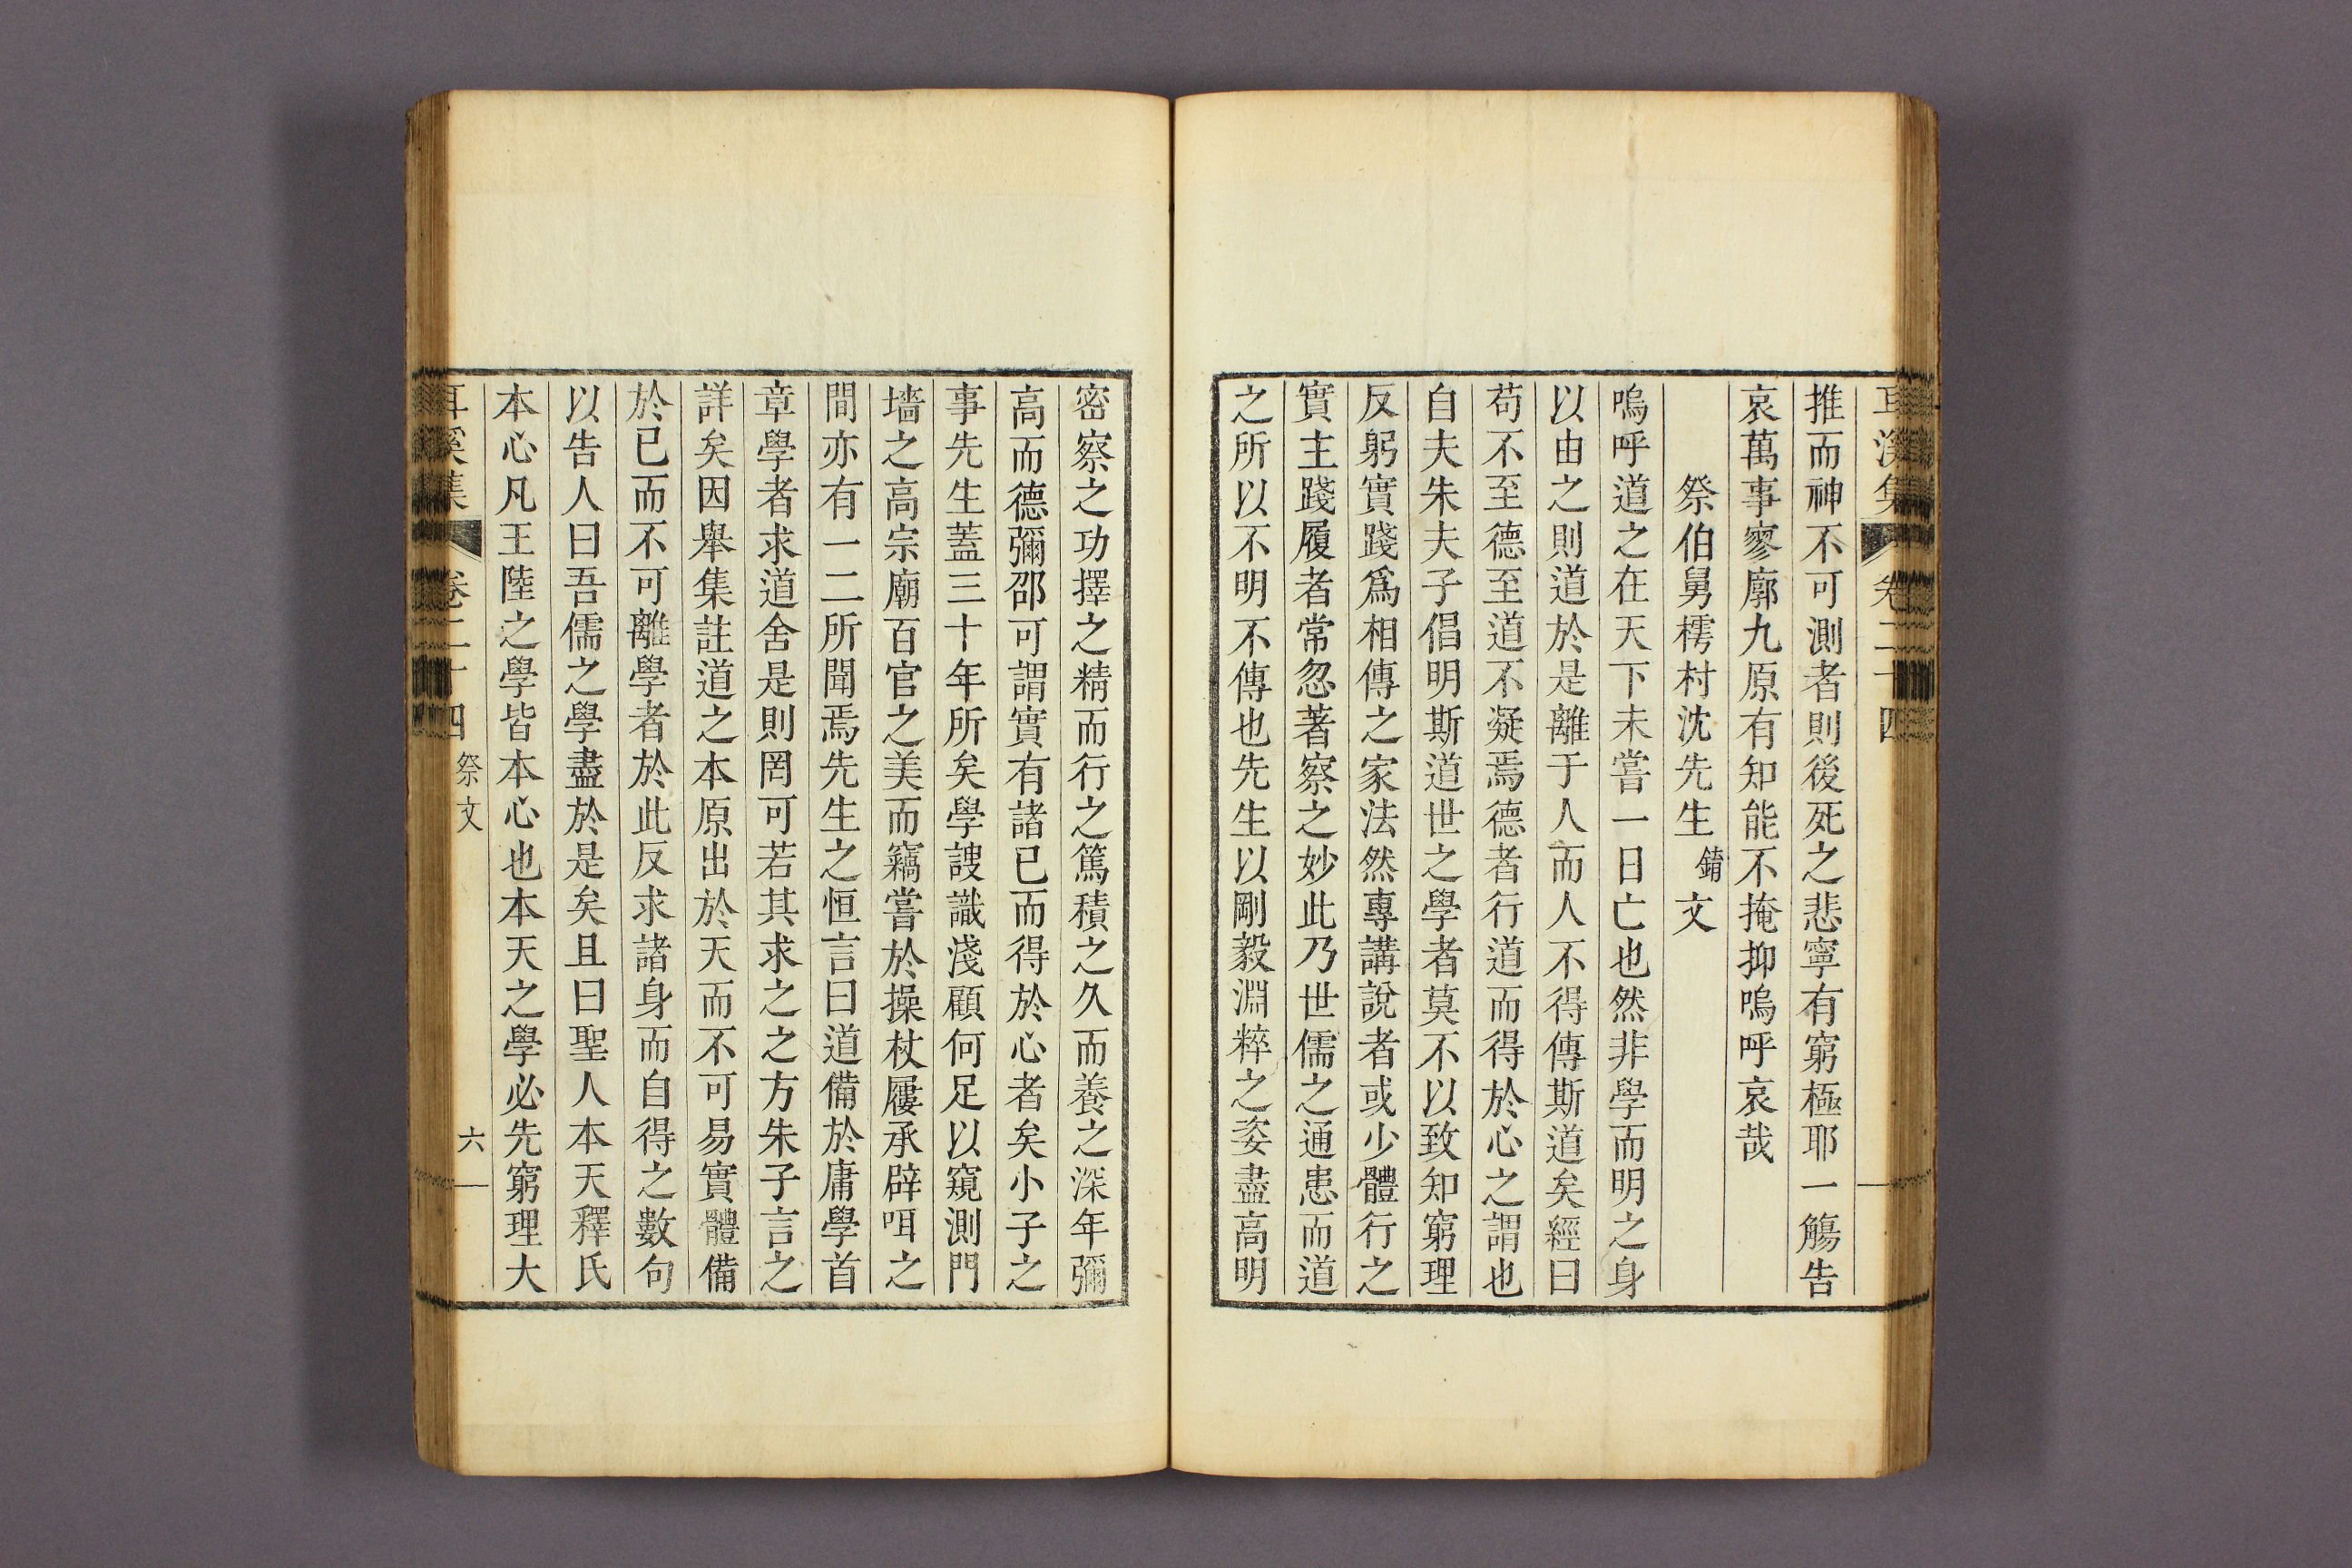 耳溪集 卷二十四
推而神不可測者則後死之悲寧有窮極耶一觴告
哀萬事寥廓九原有知能不掩抑嗚呼哀哉
祭伯舅樗村沈先生錥文
嗚呼道之在天下未嘗一日亡也然非學而明之身
以由之則道於是離于人而人不得傳斯道矣經曰
苟不至德至道不凝焉德者行道而得於心之謂也
自夫朱夫子倡明斯道世之學者莫不以致知窮理
反躬實踐爲相傳之家法然專講說者或少體行之
實主踐履者常忽著察之妙此乃世儒之通患而道
之所以不明不傳也先生以剛毅淵粹之姿盡高明
密察之功擇之精而行之篤積之久而養之深年彌
高而德彌邵可謂實有諸已而得於心者矣小子之
事先生蓋三十年所矣學謏識淺顧何足以窺測門
墻之高宗廟百官之美而竊嘗於操杖屨承辟咡之
間亦有一二所聞焉先生之恒言曰道備於庸學首
章學者求道舍是則罔可若其求之之方朱子言之
詳矣因舉集註道之本原出於天而不可易實體備
於已而不可離學者於此反求諸身而自得之數句
以告人曰吾儒之學盡於是矣且曰聖人本天釋氏
本心凡王陸之學皆本心也本天之學必先窮理大
耳溪集 卷二十四 祭文 六